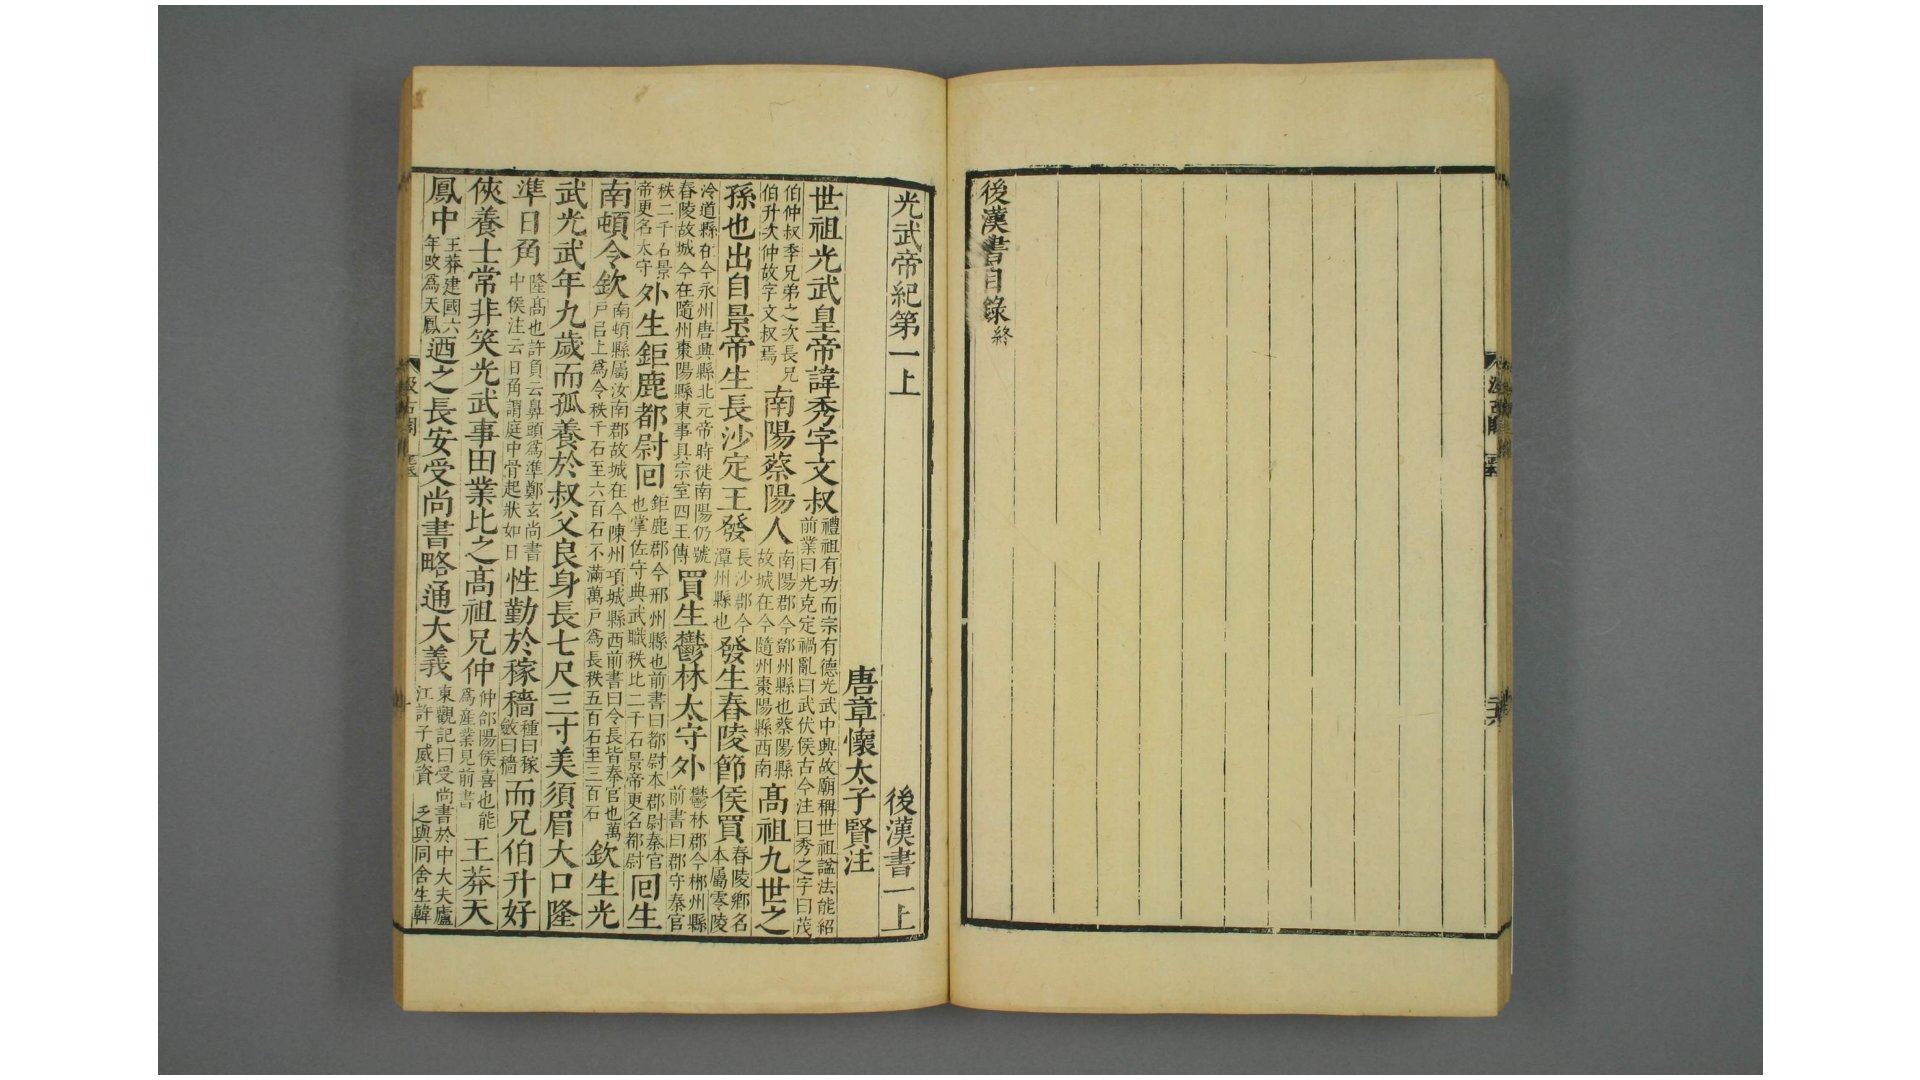 後漢書目錄終
汲古閣
光武帝紀第一上 後漢書一上
唐章懷太子賢注
世祖光武皇帝諱秀字文叔禮祖有功而宗有德光武中興故廟稱世祖諡法能紹前業曰光克定禍亂曰武伏侯古今注曰秀之字曰茂
伯仲叔季兄弟之次長兄伯升次仲故字文叔焉南陽蔡陽人南陽郡今鄧州縣也蔡陽縣故城在今隨州棗陽縣西南高祖九世之
孫也出自景帝生長沙定王發長沙郡今潭州縣也發生舂陵節侯買舂陵鄉名本屬零陵
泠道縣在今永州唐興縣北元帝時徙南陽仍號舂陵故城今在隨州棗陽縣東事具宗室四王傳買生鬱林太守外鬱林郡今郴州縣前書曰郡守秦官
秩二千石景帝更名太守外生鉅鹿都尉回鉅鹿郡今邢州縣也前書曰都尉本郡尉秦官也掌佐守典武職秩比二千石景帝更名都尉回生
南頓令欽南頓縣屬汝南郡故城在今陳州項城縣西前書曰令長皆秦官也萬戶已上爲令秩千石至六百石不滿萬戶爲長秩五百石至三百石欽生光
武光武年九歲而孤養於叔父良身長七尺三寸美須眉大口隆
準日角隆高也許負云鼻頭爲準鄭玄尚書中侯注云日角謂庭中骨起狀如日性勤於稼穡種曰稼斂曰穡而兄伯升好
俠養士常非笑光武事田業比之高祖兄仲仲郃陽侯喜也能爲産業見前書王莽天
鳳中王莽建國六年改爲天鳳迺之長安受尚書略通大義東觀記曰受尚書於中大夫廬江許子威資乏與同舍生韓
汲古閣